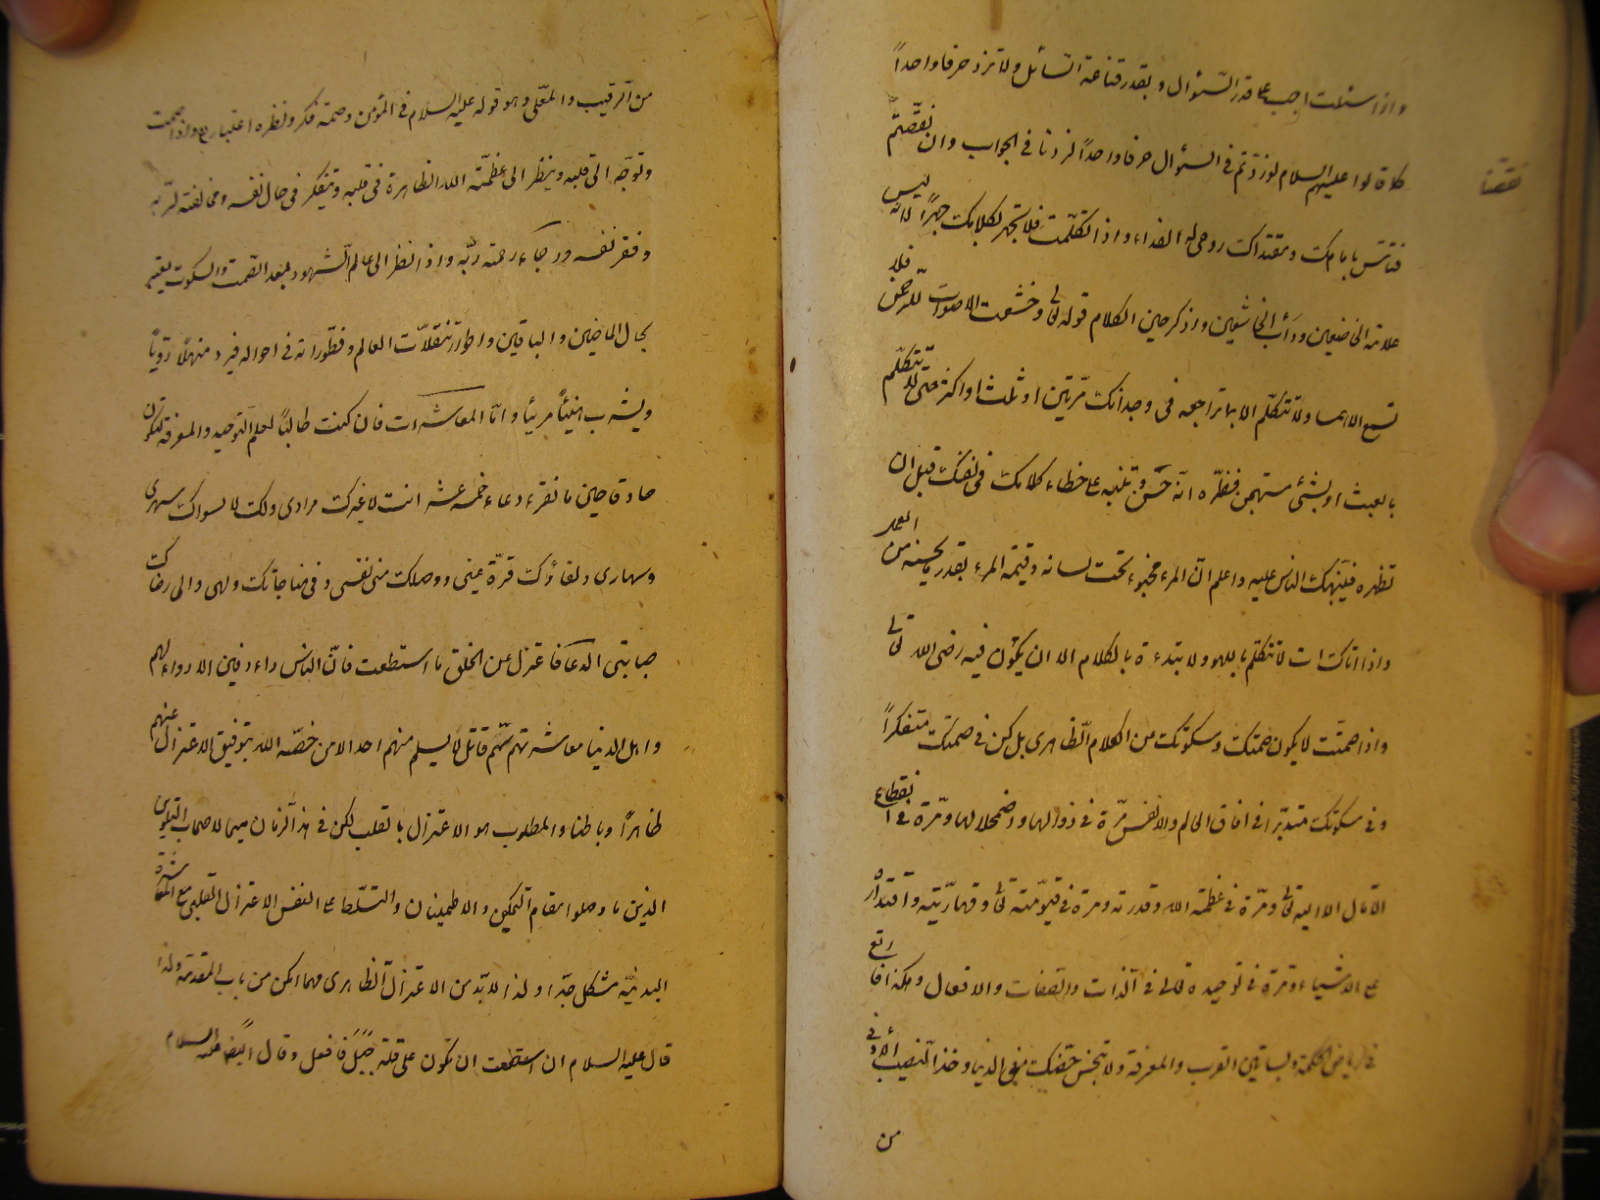 واذا سئلت اجب علی قدر السّؤال و بقدر قناعة السّائل ولا تزد حرفا واحداً
كما قالوا عليهم السلام لو زدتم فی السؤال حرفا واحداً لزدنا فی الجواب وان نقّصتم
نقصنا
فتأسّ بامامك ومقتداك روحی له الفداء واذا تكلّمت فلا تجهر بكلامك جهراً لانّه ليس
علامة الخاضعين ودأب الخاشعين واذكر حين الكلام قوله تعالی وخشعت الاصوات للرّحمن فلا
تسمع الا همسا ولا تتكلّم الا بما تراجعه فی وجدانك مرّتين او ثلثا او اكثر حتی لا تتكلّم
بالعبث او بشئ مستهجن فتظنّه انّه حسن وتنبه علی خطاء كلامك فی نفسك قبل ان
تظهره فينبّهك الناس عليه واعلم انّ المرء مخبوء تحت لسانه وقيمة المرء بقدر ما يحسنه من العمل
واذا اتاك ات لا تتكلّم باللهو ولا بتدءه بالكلام الا ان يكون فيه رضی الله تعالی
واذا صمتّ لا يكون صمتك وسكوتك من الكلام الظاهری بل كن فی صمتك متفكراً
وفی سكوتك متدبّرا فی افاق العالم والانفس مرّة فی زوالها واضمحلالها ومرّة فی انقطاع
الآمال الا اليه تعالی ومرّة فی عظمة الله وقدرته ومرة فی قيّومته تعالی وقهاريّته واقتداره
علی الاشياء ومرة فی توحيده تعالی فی الذات والصفات والافعال وهكذا فارتع
فی رياض الحكمة وبساتين القرب والمعرفة ولا تبخس حظك من الدنيا وخذ النصيب الاوفی
من
من الرقيب والمعلّی وهو قوله عليه السلام فی المؤمن وصمته فكر ونظره اعتبار واذا صمت
وتوجّه الی قلبه وينظر الی عظمة الله الظاهرة فی قلبه ويتفكر فی حال نفسه ومخالفته لربّه
وفقر نفسه ورجاء رحمة ربّه واذا نظر الی عالم الشهود بعد الصمت والسكوت يعتبر
بحال الماضين والباقين واطوار تنقلات العالم وتطوراته فی احواله فيرد منهلا رويّاً
ويشرب هنيئاً مريئا وامّا المعاشرات فان كنت طالباً لعلم التوحيد والمعرفة لتكون
صادقا حين ما تقرء دعاء خمسة عشر انت لا غيرك مرادی ولك لا لسواك سهری
وسهادی ولقاؤك قرّة عينی ووصلك منی نفسی وفی مناجاتك ولهی والی رضاك
صبابتی الدعا فاعتزل عن الخلق ما استطعت فانّ الناس داء دفين لا دواء لهم
واهل الدنيا معاشرتهم سمّ قاتل لا يسلم منهم احد الا من خصّه الله بتوفيق الاعتزال عنهم
ظاهراً وباطنا والمطلوب هو الاعتزال بالقلب لكن فی هذا الزمان سيما لاصحاب التلوين
الذين ما وصلوا مقام التمكين والاطمينان والتسلّط علی النفس الاعتزال القلبی مع المعاشرة
البدنيّة مشكل جدّا ولذا لابدّ من الاعتزال الظاهری مهما امكن من باب المقدمة ولذا
قال عليه السلام ان استطعت ان تكون علی قلة جبل فافعل وقال ايضا عليه السلام